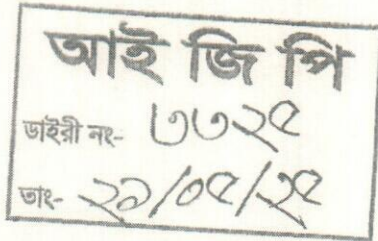 আই জি পি
ডাইরী নং- ৩৩২৫
তাং- ২৯/০৫/২৫